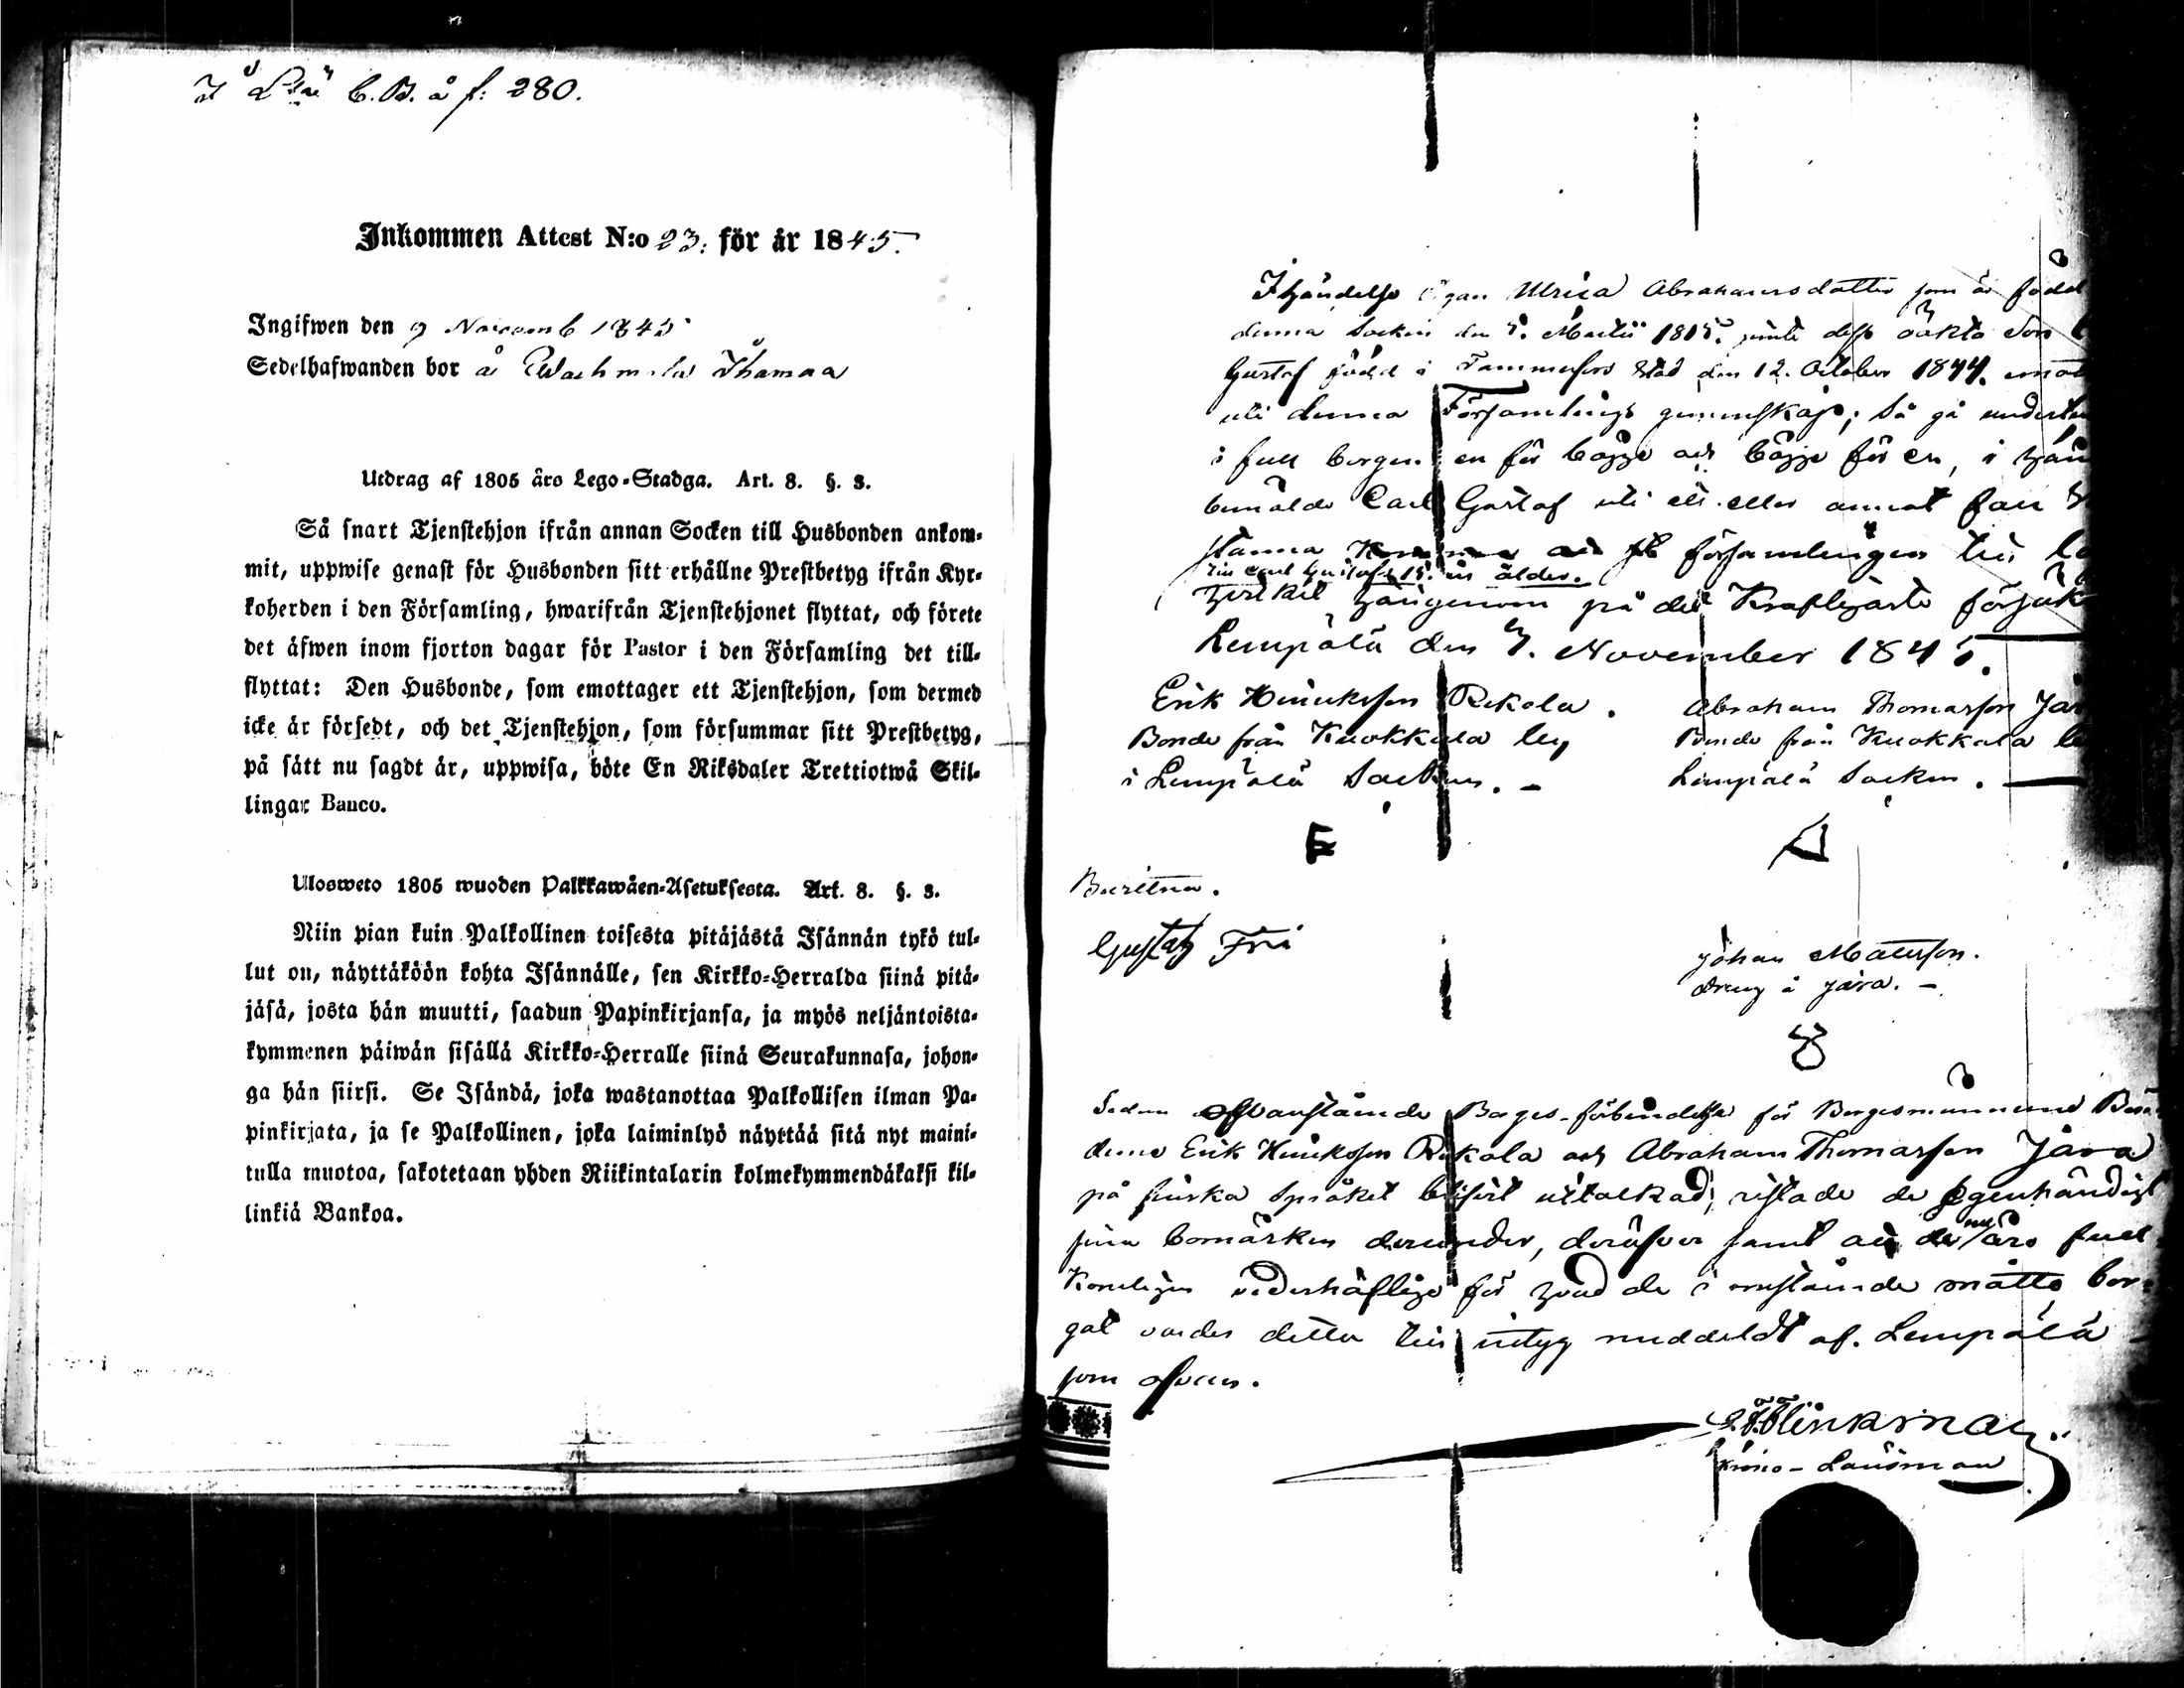 C. B. å f: 280.
Inkommen Attest N:o 23. för år 1845.
Ingifwen den 9 Novemb 1845
Sedelhafwanden bor å
Utdrag af 1805 åro Lego-Stadga. Art. 8. §. 3.
Så snart Tjenstehjon ifrån annan Socken till Husbonden ankom-
mit, uppwise genast för Husbonden sitt erhållne Prestbetyg ifrån Kyr-
koherden i den Församling, hwarifrån Tjenstehjonet flyttat, och förete
det äfwen inom fjorton dagar för Pastor i den Församling det till-
flyttat: Den Husbonde, som emottager ett Tjenstehjon, som dermed
icke är försedt, och det Tjenstehjon, som försummar sitt Prestbetyg,
på sätt nu sagdt är, uppwisa, böte En Riksdaler Trettiotwå Skil-
lingar Banco.
Ulosweto 1805 wuoden Palkkawäen-Asetuksesta. Art. 8. §. 3.
Niin pian kuin Palkollinen toisesta pitäjästä Isännän tykö tul-
lut on, näyttäköön kohta Isännälle, sen Kirkko-Herralda siinä pitä-
jäsä, josta hän muutti, saadun Papinkirjansa, ja myös neljäntoista-
kymmenen päiwän sisällä Kirkko-Herralle siinä Seurakunnasa, johon-
ga hän siirsi. Se Isändä, joka wastanottaa Palkollisen ilman Pa-
pinkirjata, ja se Palkollinen, joka laiminlyö näyttää sitä nyt maini-
tulla muotoa, sakotetaan yhden Riikintalarin kolmekymmendäkaksi kil-
linkiä Bankoa.
I händelse Pigan Ulrica Abrahamsdotter som är född
denna Socken den 5. Martii 1815. jemte dess oäkta Son
Gustaf född i Tammerfors Stad den 12. October 1844.
uti denna Församlings gemenskap; Så gå
i full borgen en för bägge och bägge för en, i
bemälde Carl Gustaf uti ett eller annat fall
stanna att församlingen till
till Carl Gustafs 15. års ålder.
på det Kraftigaste
Lempälä den 7. November 1845.
Erik Henriksson Rekola.
Bonde från Kuokkala by
i Lempälä Socken. -
Abraham Thomasson
Bonde från Kuokkala
Lempälä Socken.
E
A
Bevittna.
Gustaf Fri
Johan Matsson.
Dreng å Java. -
Sedan ofvanstående Borges-förbindelse för Borgesmännerne
Erik Henriksson Rekola och Abraham Thomasson Java
på finska Språket blifvit uttolkad, ristade de egenhändigt
sina bomärken derunder, deröfver samt att de nu äro full-
Komligen vederhäftige för hvad de i ofvanstående måtto bor-
gat varder detta till intyg meddeldt af. Lempälä
som ofvan.
Krono-Länsman